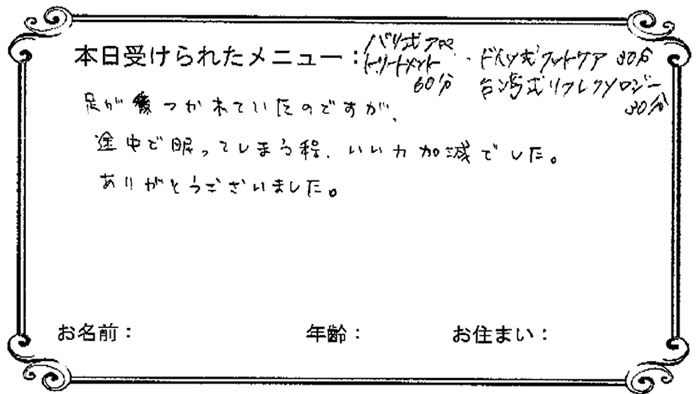 本日受けられたメニュー：バリ式アロマ
トリートメント
60分
・ドイツ式フットケア 30分
台湾式リフレクソロジー
30分
足がつかれていたのですが、
途中で眠ってしまう程、いい力加減でした。
ありがとうございました。
お名前： 年齢： お住まい：